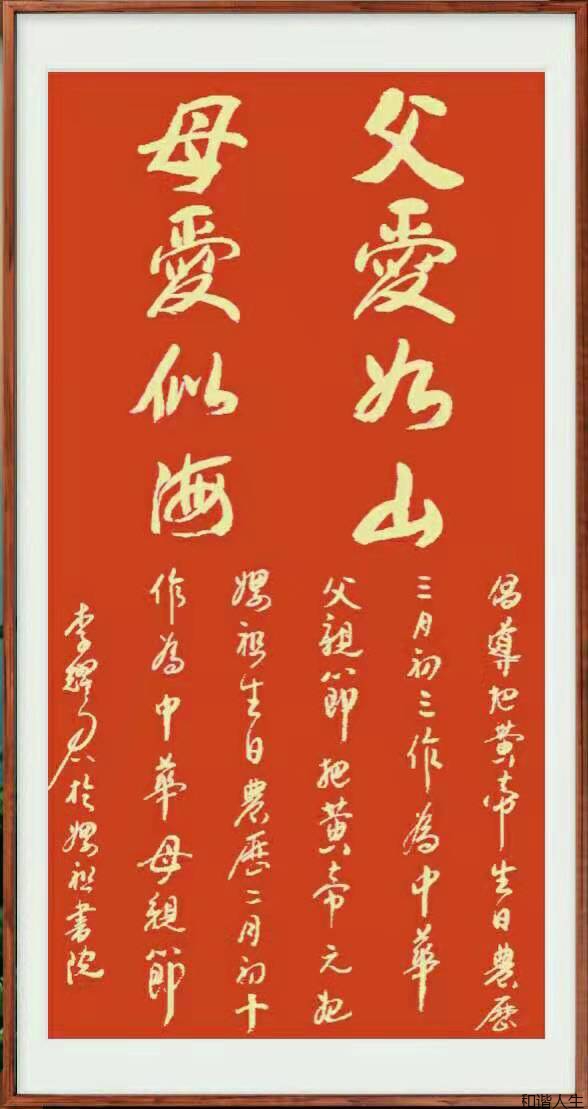 父愛如山
母愛似海
倡導把黄帝生日農歷
三月初三作為中華
父親節把黄帝元妃
嫘祖生日農歷二月初十
作為中華母親節
李耀於嫘祖書院
和谐人生